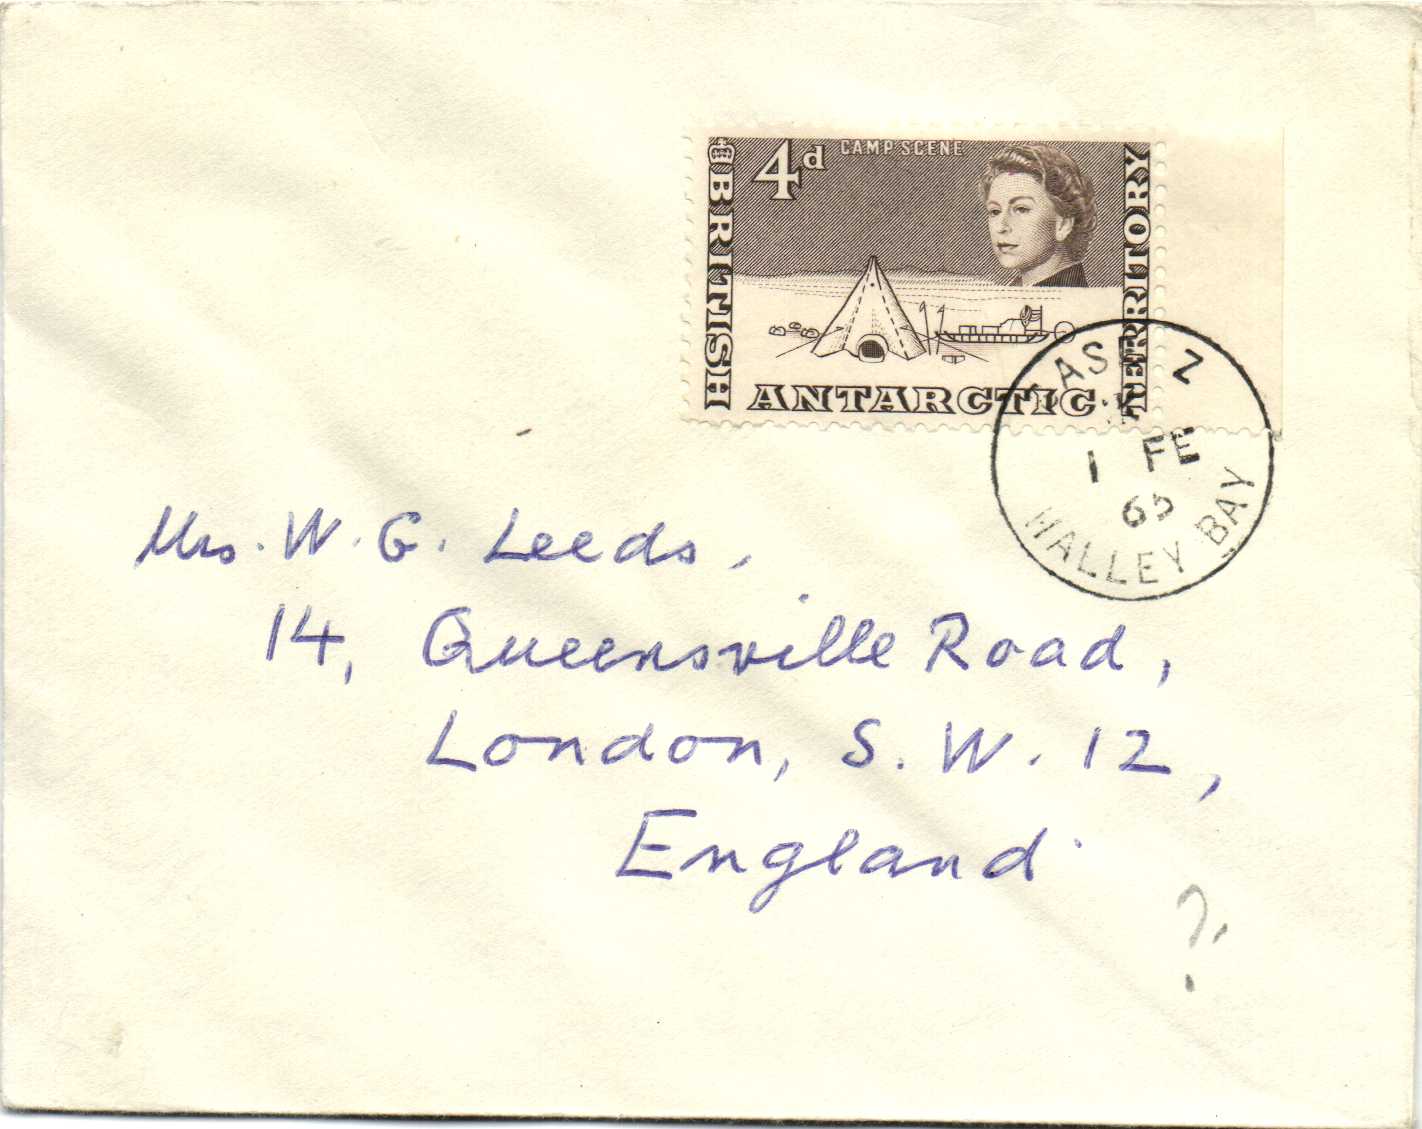 4d CAMP SCENE
BRITISH
ANTARCTIC
TERRITORY
BASE Z
1 FE
65
HALLEY BAY
Mrs. W. G. Leeds,
14, Queensville Road,
London, S. W. 12,
England.
?